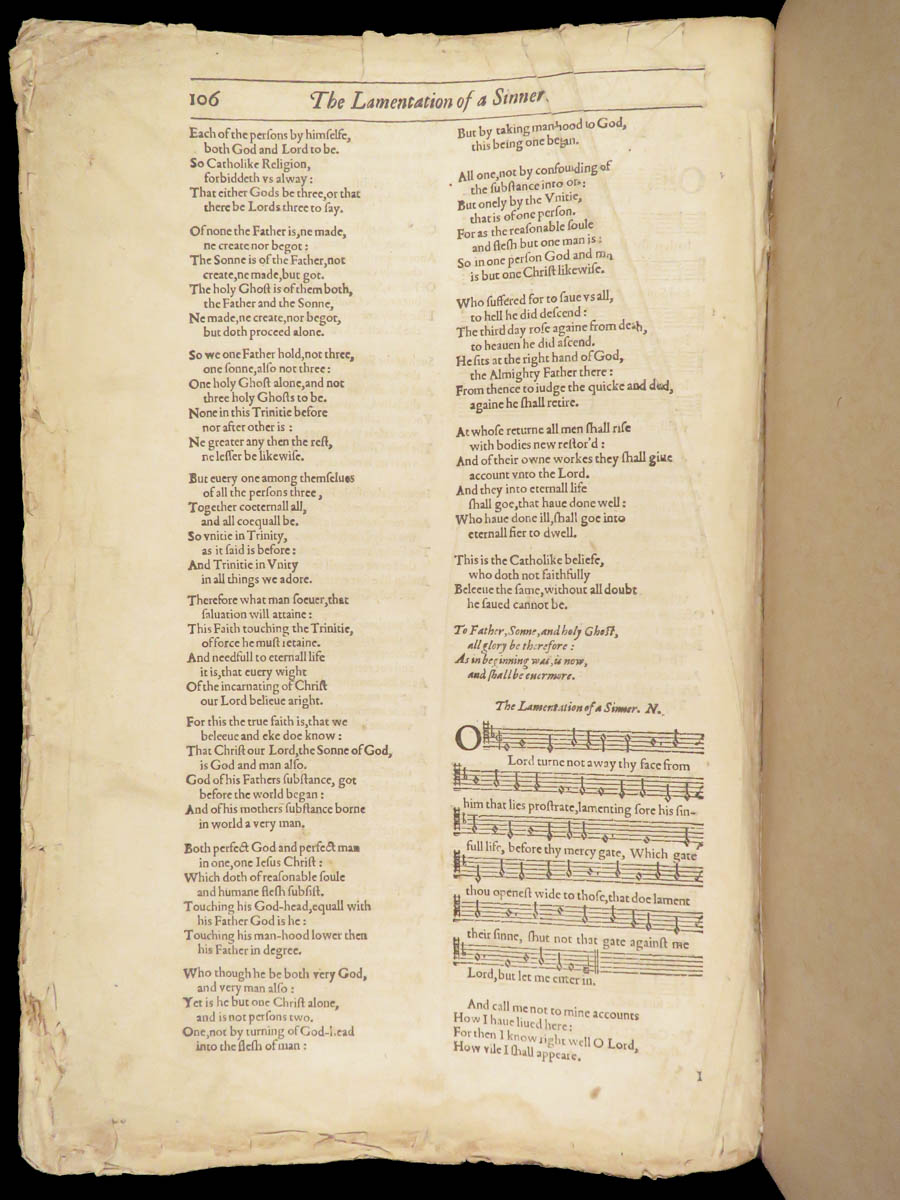 106
The Lamentation of a Sinner.
Each of the perſons by himſelfe,
both God and Lord to be.
So Catholike Religion,
forbiddeth vs alway:
That either Gods be three, or that
there be Lords three to ſay.
Of none the Father is, ne made,
ne create nor begot:
The Sonne is of the Father, not
create, ne made, but got.
The holy Ghoſt is of them both,
the Father and the Sonne,
Ne made, ne create, nor begot,
but doth proceed alone.
So we one Father hold, not three,
one ſonne, alſo not three:
One holy Ghoſt alone, and not
three holy Ghoſts to be.
None in this Trinitie before
nor after other is:
Ne greater any then the reſt,
ne leſſer be likewiſe.
But euery one among themſelues
of all the perſons three,
Together coeternall all,
and all coequall be.
So vnitie in Trinity,
as it ſaid is before:
And Trinitie in Vnity
in all things we adore.
Therefore what man ſoeuer, that
ſaluation will attaine:
This Faith touching the Trinitie,
of force he muſt retaine.
And needfull to eternall life
it is, that euery wight
Of the incarnating of Chriſt
our Lord belieue aright.
For this the true faith is, that we
beleeue and eke doe know:
That Chriſt our Lord, the Sonne of God,
is God and man alſo.
God of his Fathers ſubſtance, got
before the world began:
And of his mothers ſubſtance borne
in world a very man.
Both perfect God and perfect man
in one, one Ieſus Chriſt:
Which doth of reaſonable ſoule
and humane fleſh ſubſiſt.
Touching his God-head, equall with
his Father God is he:
Touching his man-hood lower then
his Father in degree.
Who though he be both very God,
and very man alſo:
Yet is he but one Chriſt alone,
and is not perſons two.
One, not by turning of God-head
into the fleſh of man:
But by taking manhood to God,
this being one began.
All one, not by confounding of
the ſubſtance into one:
But onely by the Vnitie,
that is of one perſon.
For as the reaſonable ſoule
and fleſh but one man is:
So in one perſon God and man
is but one Chriſt likewiſe.
Who ſuffered for to ſaue vs all,
to hell he did deſcend:
The third day roſe againe from death,
to heauen he did aſcend.
He ſits at the right hand of God,
the Almighty Father there:
From thence to iudge the quicke and dead,
againe he ſhall retire.
At whoſe returne all men ſhall riſe
with bodies new reſtor'd:
And of their owne workes they ſhall giue
account vnto the Lord.
And they into eternall life
ſhall goe, that haue done well:
Who haue done ill, ſhall goe into
eternall fier to dwell.
This is the Catholike beliefe,
who doth not faithfully
Beleeue the ſame, without all doubt
he ſaued cannot be.
To Father, Sonne, and holy Ghoſt,
all glory be therefore:
As in beginning was, is now,
and ſhall be euermore.
The Lamentation of a Sinner. N.
O
Lord turne not away thy face from
him that lies proſtrate, lamenting ſore his ſin-
full life, before thy mercy gate, Which gate
thou openeſt wide to thoſe, that doe lament
their ſinne, ſhut not that gate againſt me
Lord, but let me enter in.
And call me not to mine accounts
How I haue liued here:
For then I know right well O Lord,
How vile I ſhall appeare.
I